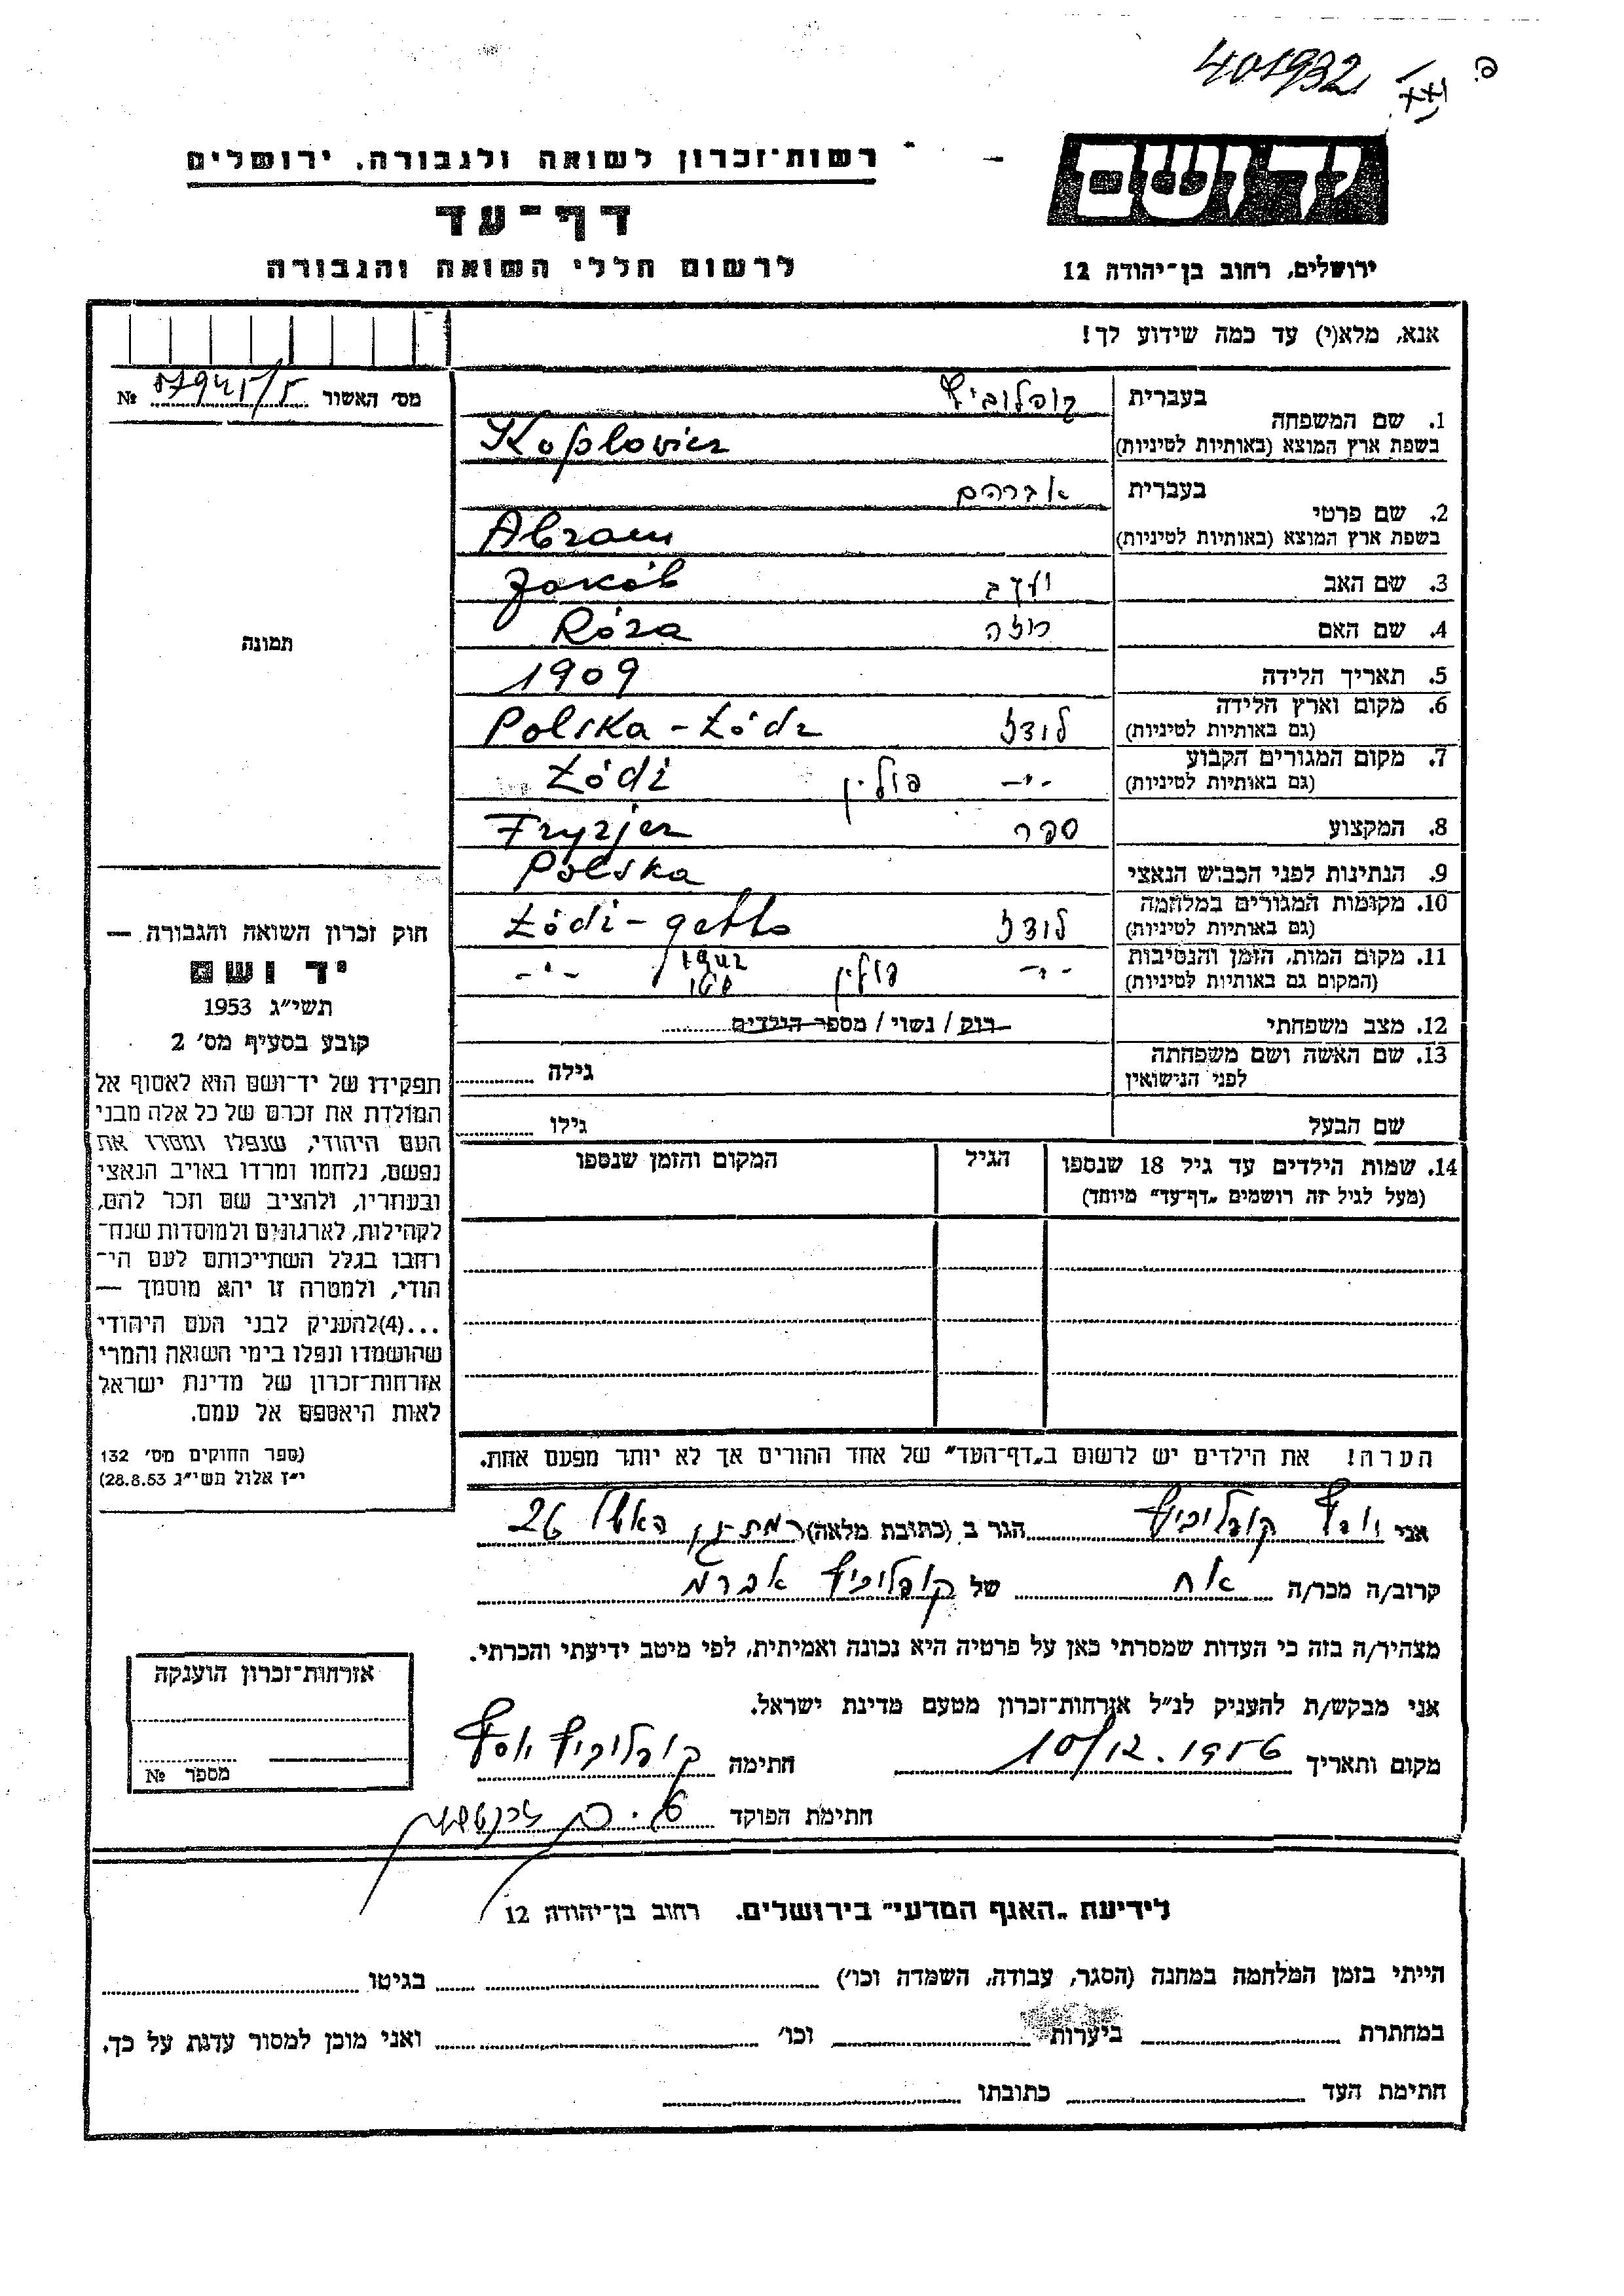 401932
יד ושם
רשות־זכרון לשואה ולגבורה. ירושלים
דף־עד
לרשום חללי השואה והגבורה
ירושלים, רחוב בן־יהודה 12
אנא, מלא(י) עד כמה שידוע לך!
מס׳ האשור №
1. שם המשפחה
בעברית קופלוביץ
בשפת ארץ המוצא (באותיות לטיניות) Koplovicz
2. שם פרטי
בעברית אברהם
בשפת ארץ המוצא (באותיות לטיניות) Abram
3. שם האב יעקב Jakób
4. שם האם רוזה Róza
5. תאריך הלידה 1909
6. מקום וארץ הלידה לודז Polska - Łódz
(גם באותיות לטיניות)
7. מקום המגורים הקבוע -"- פולין Łódź
(גם באותיות לטיניות)
8. המקצוע ספר Fryzjer
9. הנתינות לפני הכבוש הנאצי Polska
10. מקומות המגורים במלחמה לודז Łódź - getto
(גם באותיות לטיניות)
11. מקום המות, הזמן והנסיבות -"- פולין 1942 -"-
(המקום גם באותיות לטיניות)
12. מצב משפחתי רוק / נשוי / מספר הילדים
13. שם האשה ושם משפחתה
לפני הנישואין
גילה
שם הבעל גילו
14. שמות הילדים עד גיל 18 שנספו הגיל המקום והזמן שנספו
(מעל לגיל זה רושמים „דף־עד״ מיוחד)
הערה! את הילדים יש לרשום ב„דף־העד״ של אחד ההורים אך לא יותר מפעם אחת.
תמונה
חוק זכרון השואה והגבורה —
יד ושם
תשי״ג 1953
קובע בסעיף מס׳ 2
תפקידו של יד־ושם הוא לאסוף אל
המולדת את זכרם של כל אלה מבני
העם היהודי, שנפלו ומסרו את
נפשם, נלחמו ומרדו באויב הנאצי
ובעוזריו, ולהציב שם וזכר להם,
לקהילות, לארגונים ולמוסדות שנח־
רחבו בגלל השתייכותם לעם הי־
הודי, ולמטרה זו יהא מוסמך —
...(4)להעניק לבני העם היהודי
שהושמדו ונפלו בימי השואה והמרי
אזרחות־זכרון של מדינת ישראל
לאות היאספם אל עמם.
(ספר החוקים מס׳ 132
י״ז אלול תשי״ג 28.8.53)
אני יוסף קופלוביץ הגר ב (כתובת מלאה) רמת גן 26
קרוב/ה מכר/ה אח של קופלוביץ אברם
מצהיר/ה בזה כי העדות שמסרתי כאן על פרטיה היא נכונה ואמיתית, לפי מיטב ידיעתי והכרתי.
אני מבקש/ת להעניק לנ״ל אזרחות־זכרון מטעם מדינת ישראל.
מקום ותאריך 10/12.1956 חתימה קופלוביץ יוסף
חתימת הפוקד
אזרחות־זכרון הוענקה
מספר №
לידיעת „האגף המדעי״ בירושלים. רחוב בן־יהודה 12
הייתי בזמן המלחמה במחנה (הסגר, עבודה, השמדה וכו׳) בגיטו
במחתרת ביערות וכו׳ ואני מוכן למסור עדות על כך.
חתימת העד כתובתו